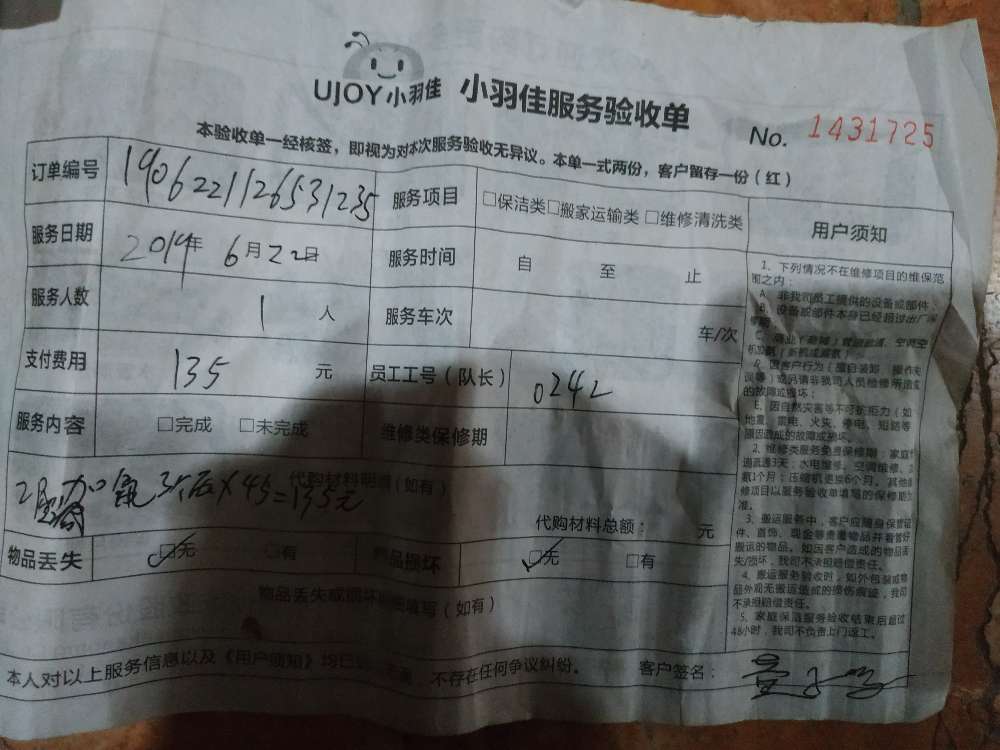 UJOY小羽佳 小羽佳服务验收单
No. 1431725
本验收单一经核签，即视为对本次服务验收无异议。本单一式两份，客户留存一份（红）
订单编号 1906221126531235 服务项目 □保洁类□搬家运输类 □维修清洗类
服务日期 2019年 6月22日 服务时间 自 至 止
服务人数 1 人 服务车次 车/次
支付费用 135 元 员工工号（队长） 0242
服务内容 □完成 □未完成 维修类保修期
代购材料明细(如有)
加氟 3个压×45=135元
代购材料总额： 元
物品丢失 □无 □有 物品损坏 □无 □有
物品丢失或损坏 填写（如有）
本人对以上服务信息以及《用户须知》均已 ，不存在任何争议纠纷。 客户签名：
用户须知
1、下列情况不在维修项目的维保范
围之内：
A、非我司员工提供的设备或部件、
B、设备或部件本身已经超过出厂保
机加氟（新机或漏氟）
D、因客户行为（擅自装卸、操作失
误等）或另请非我司人员检修所造成
的故障或损坏；
E、因自然灾害等不可抗拒力（如
地震、雷电、火灾、停电、短路等
原因造成的故障或损坏。
2、维修类服务免费保修期：家庭管
道疏通3天；水电维修、空调维修、加
氟1个月；压缩机更换6个月。其他维
修项目以服务验收单填写的保修期为
准。
3、搬运服务中，客户应随身保管证
件、首饰、现金等贵重物品并看管好
搬运的物品。如因客户造成的物品丢
失/损坏，我司不承担赔偿责任。
4、搬运服务验收时，如外包装或物
品外观无搬运造成的损伤痕迹，我司
不承担赔偿责任。
5、家庭保洁服务验收结束后超过
48小时，我司不负责上门返工。